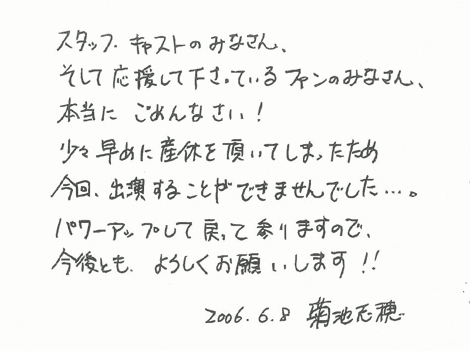 スタッフ、キャストのみなさん、
そして応援して下さっているファンのみなさん、
本当に ごめんなさい!
少々早めに産休を頂いてしまったため
今回、出演することができませんでした…。
パワーアップして戻って参りますので、
今後とも、よろしくお願いします!!
2006.6.8 菊池志穂